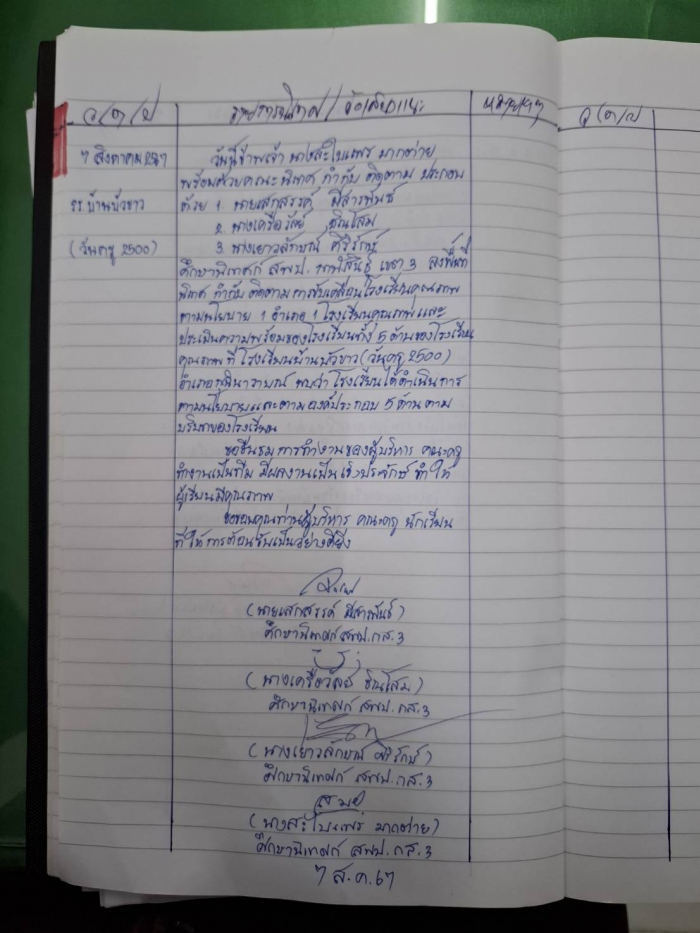 ว/ด/ป
รายการนิเทศ / ข้อเสนอแนะ
หมายเหตุ
ว/ด/ป
7 สิงหาคม 2567
รร.บ้านบัวขาว
(วันครู 2500)
วันนี้ข้าพเจ้า นางสะใบแพร มากต่าย
พร้อมด้วยคณะนิเทศ กำกับ ติดตาม ประกอบ
ด้วย 1. นายเสกสรรค์ มีสารพันธ์
2. นางเครือวัลย์ ชินโสม
3. นางเยาวลักษณ์ ศิริรักษ์
ศึกษานิเทศก์ สพป. กาฬสินธุ์ เขต 3 ลงพื้นที่
นิเทศ กำกับ ติดตามการขับเคลื่อนโรงเรียนคุณภาพ
ตามนโยบาย 1 อำเภอ 1 โรงเรียนคุณภาพ และ
ประเมินความพร้อมของโรงเรียนทั้ง 5 ด้านของโรงเรียน
คุณภาพ ที่ โรงเรียนบ้านบัวขาว (วันครู 2500)
อำเภอกุฉินารายณ์ พบว่า โรงเรียนได้ดำเนินการ
ตามนโยบายและตามองค์ประกอบ 5 ด้านตาม
บริบทของโรงเรียน
ขอชื่นชม การทำงานของผู้บริหาร คณะครู
ทำงานเป็นทีม มีผลงานเป็นเชิงประจักษ์ ทำให้
ผู้เรียนมีคุณภาพ
ขอขอบคุณท่านผู้บริหาร คณะครู นักเรียน
ที่ให้การต้อนรับเป็นอย่างดียิ่ง
(นายเสกสรรค์ มีสารพันธ์)
ศึกษานิเทศก์ สพป.กส.3
(นางเครือวัลย์ ชินโสม)
ศึกษานิเทศก์ สพป.กส.3
(นางเยาวลักษณ์ ศิริรักษ์)
ศึกษานิเทศก์ สพป.กส.3
(นางสะใบแพร มากต่าย)
ศึกษานิเทศก์ สพป.กส.3
7 ส.ค.67